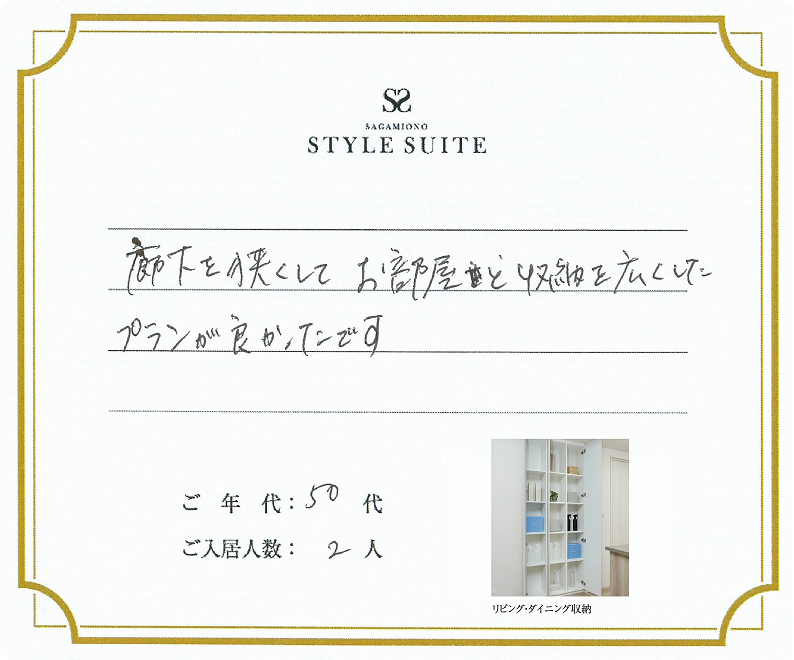 SS
SAGAMIONO
STYLE SUITE
廊下を狭くして お部屋と収納を広くした
プランが良かったです
ご年代：50代
ご入居人数：2人
リビング・ダイニング収納